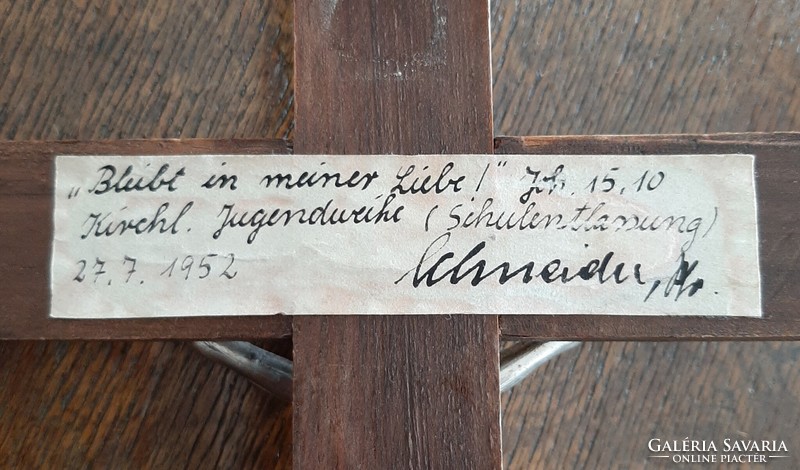 „Bleibt in meiner Liebe!" Joh. 15,10
Kirchl. Jugendweihe (Schulentlassung)
27.7. 1952 Schneider, Pfr.
GALÉRIA SAVARIA
ONLINE PIACTÉR